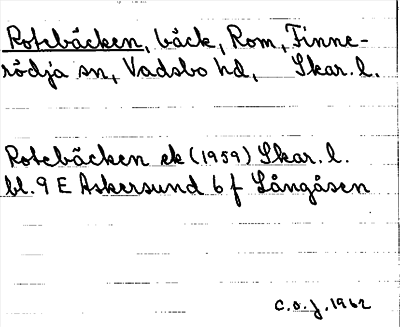 Rotebäcken, bäck, Rom, Finne-
rödja sn, Vadsbo hd, Skar. l.
Rotebäcken ek (1959) Skar. l.
bl. 9 E Askersund 6 f Långåsen
C.O.J. 1962